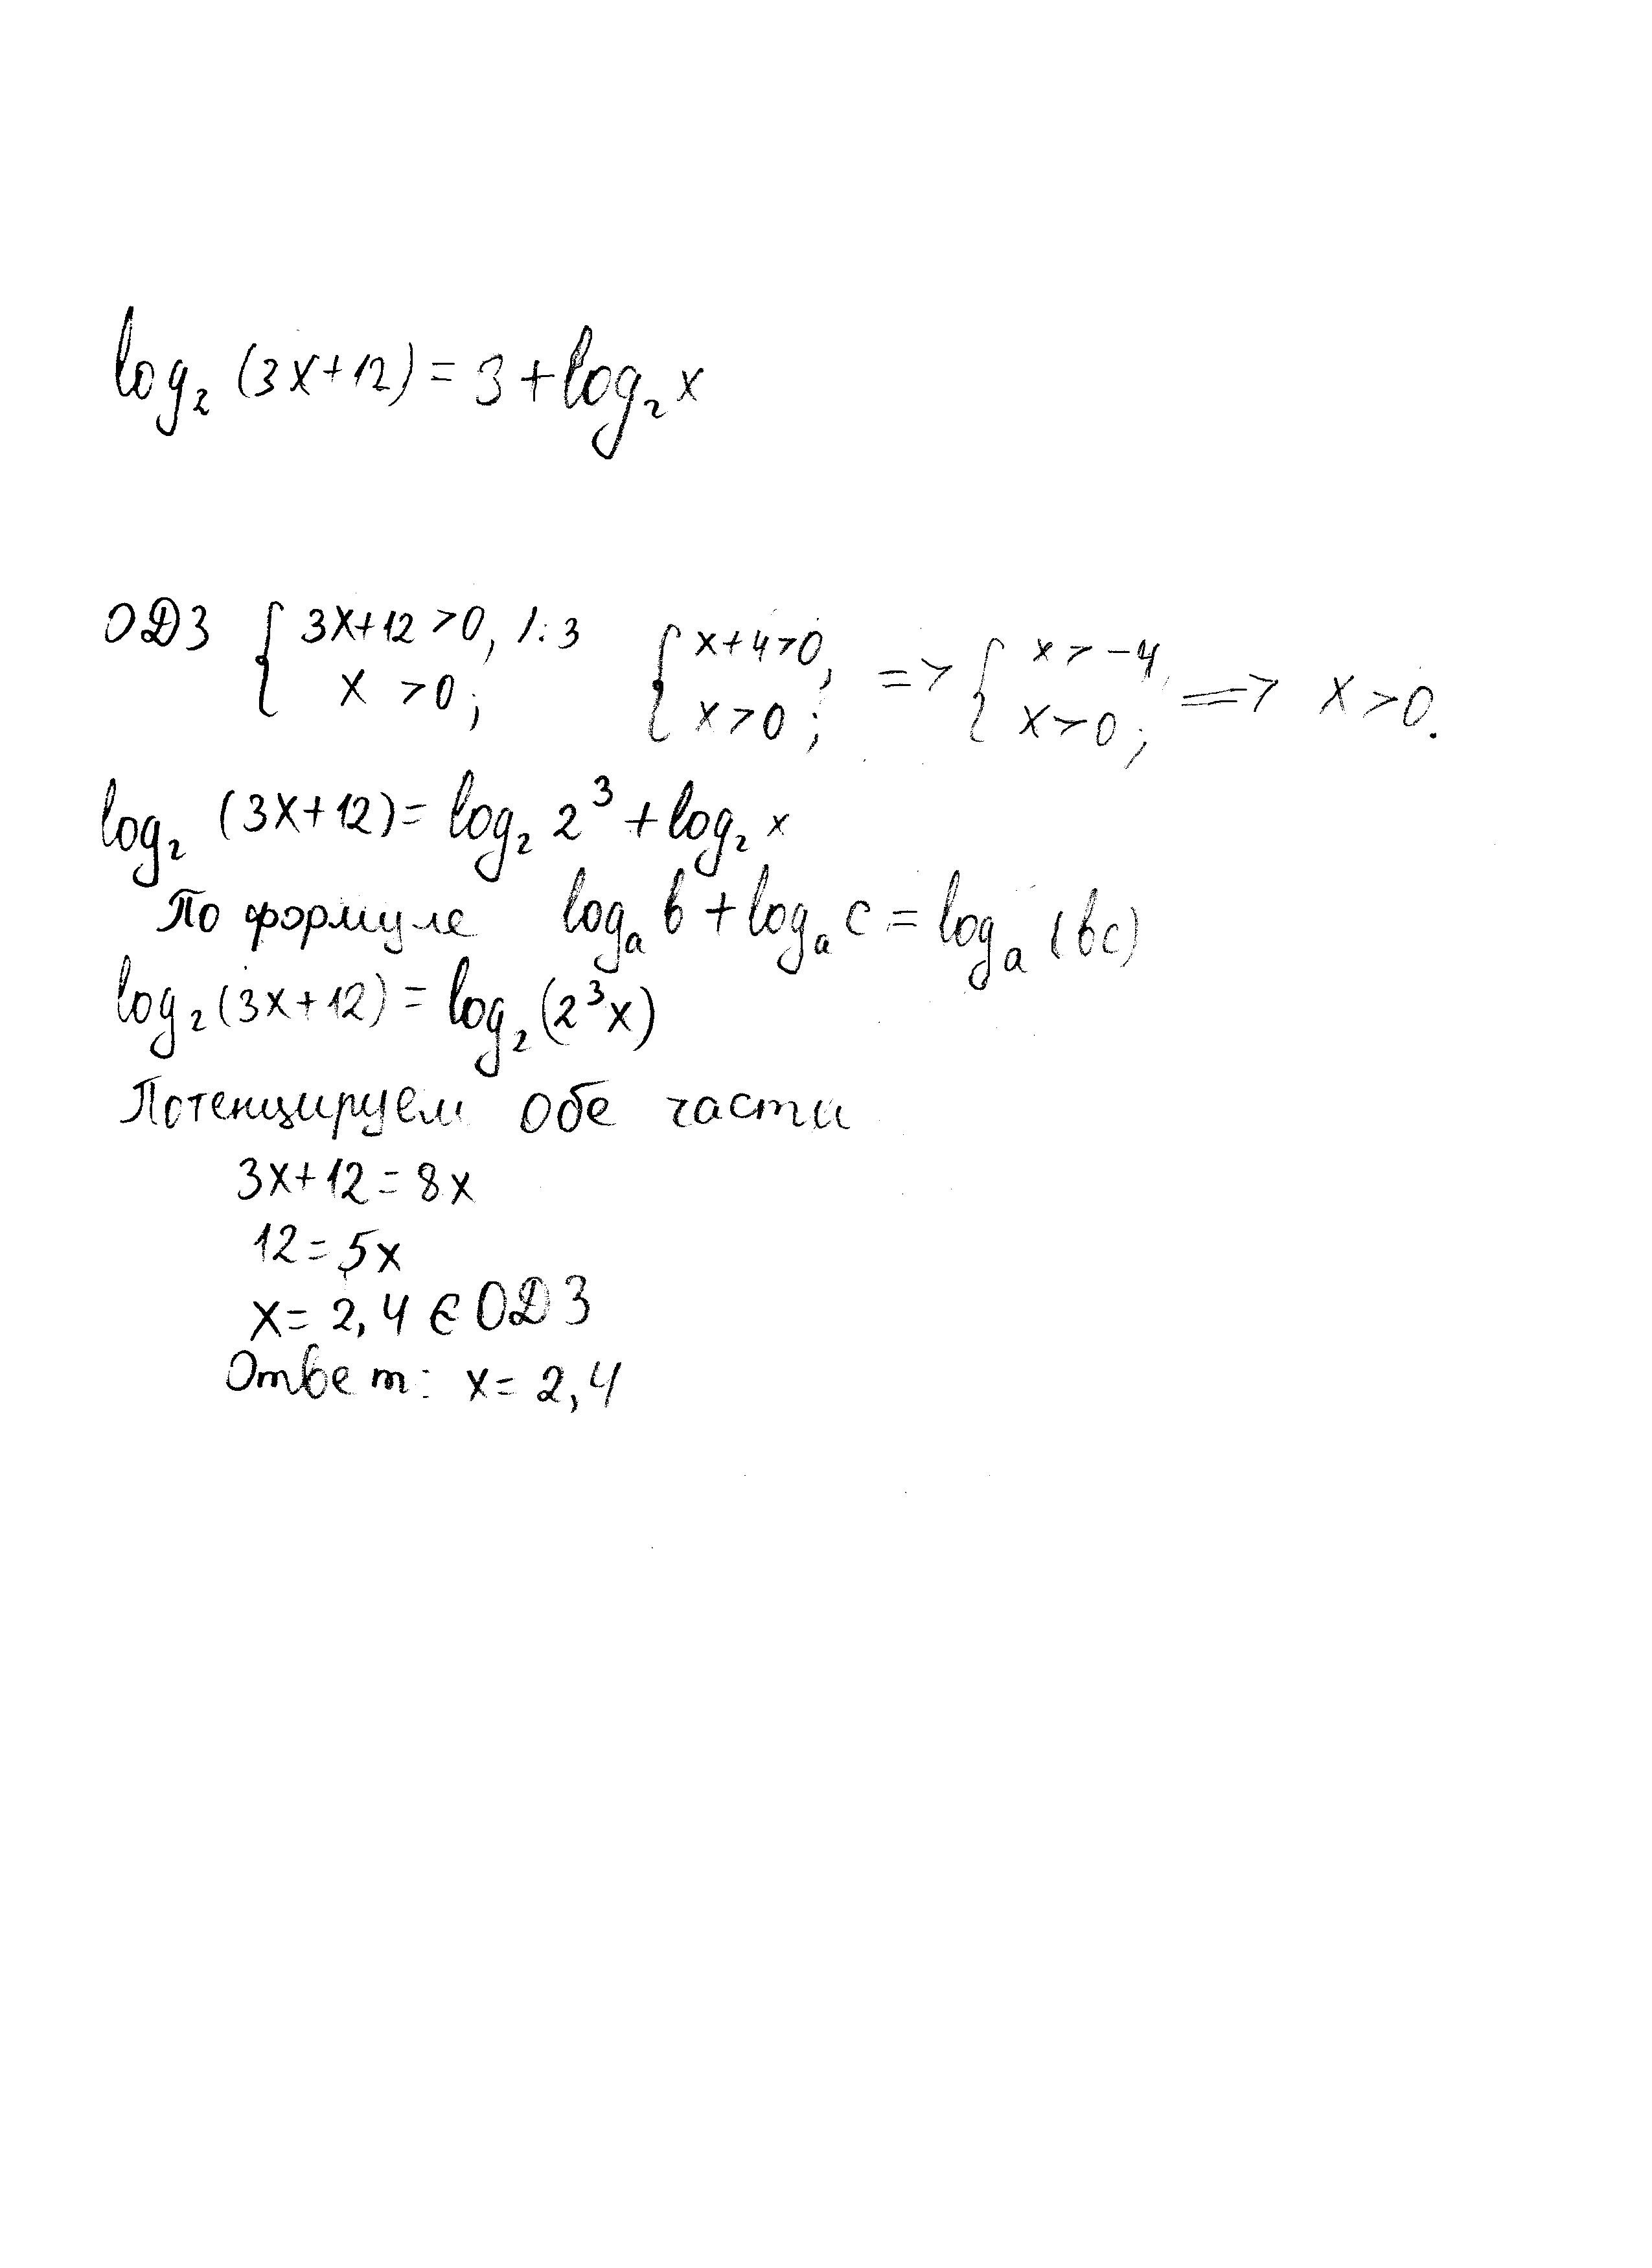 log₂ (3x+12) = 3 + log₂ x
ОДЗ { 3x+12 >0, /:3 { x+4>0, => { x > -4, => x >0.
x >0; x>0; x>0;
log₂ (3x+12) = log₂ 2³ + log₂ x
По формуле logₐ b + logₐ c = logₐ (bc)
log₂ (3x+12) = log₂ (2³x)
Потенцируем обе части
3x+12 = 8x
12 = 5x
x = 2,4 ∈ ОДЗ
Ответ: x = 2,4